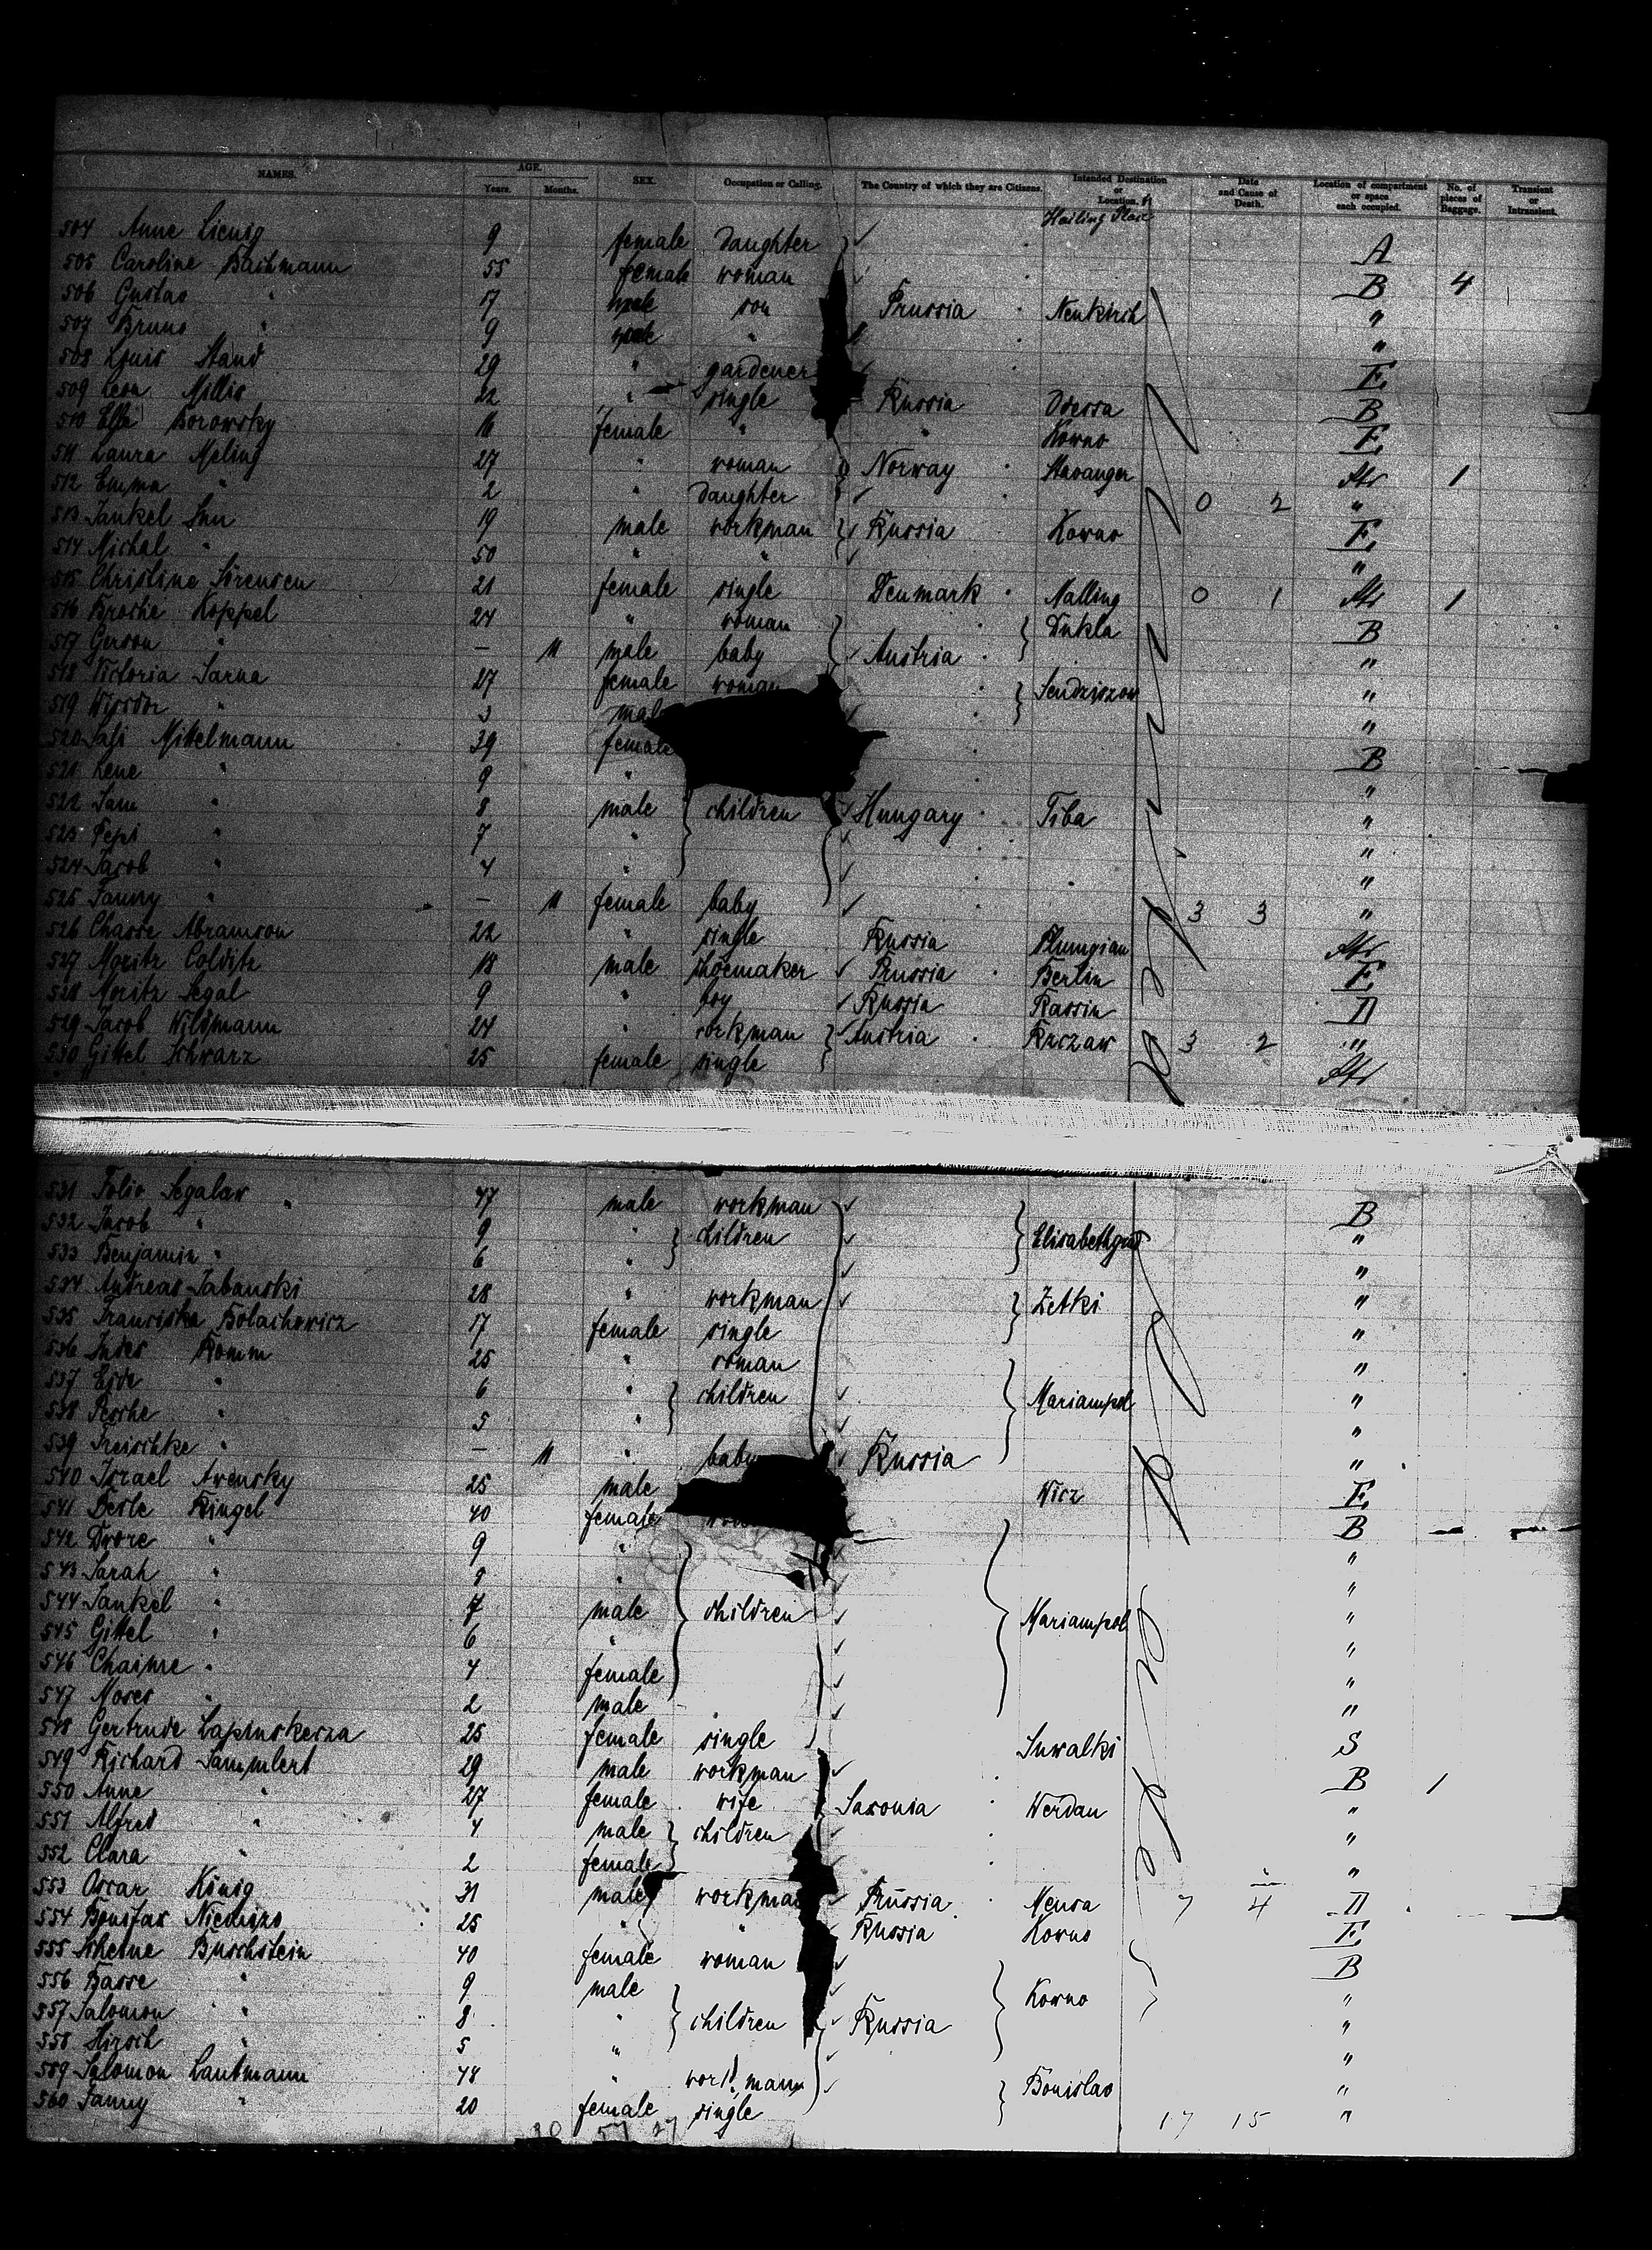 NAMES. AGE. Years. Months. SEX. Occupation or Calling. The Country of which they are Citizens. Intended Destination or Location. Date and Cause of Death. Location of compartment or space each occupied. No. of pieces of Baggage. Transient or Intransient.
Hailing Place
504 Anne Lienig 9 female Daughter A
505 Caroline Bachmann 55 female woman B 4
506 Gustav " 17 male son Prussia Neukirch "
507 Bruno " 9 male " "
508 Louis Stand 29 " gardener E
509 Leon Millis 22 " single Russia Odessa B
510 Borowsky 16 female " " Kowno E
511 Laura Meling 27 " woman Norway Stavanger Str 1
512 Emma " 2 " Daughter 0 2 "
513 Jankel 19 male workman Russia Kowno E
514 Michal " 50 " " "
515 Christine Sörensen 21 female single Denmark Malling 0 1 Str 1
516 Broche Koppel 24 " woman Dukla B
517 Gerson " – 11 male baby Austria "
518 Victoria Sarna 27 female woman Sendziszow "
519 " 3 male "
520 Mittelmann 39 female B
521 Lene " 9 " "
522 Sam " 8 male children Hungary Tiba "
523 Pepi " 7 " "
524 Jacob " 4 " "
525 Fanny " – 11 female baby 3 3 "
526 Chasse Abramson 22 " single Russia Plungian Str
527 Moritz Colditz 18 male shoemaker Prussia Berlin E
528 Moritz Segal 9 " boy Russia Rassin D
529 Jacob Wildmann 24 " workman Austria Rzczaw 3 2 "
530 Gittel Schwarz 25 female single Str
531 Segalaw 47 male workman B
532 Jacob " 9 " children Elisabethgrad "
533 Benjamin " 6 " "
534 Andreas Sabanski 28 " workman Zetki "
535 Franciska Bolachowicz 17 female single "
536 Romm 25 " woman "
537 " 6 " children Mariampol "
538 Pesche " 5 " "
539 Freischke " – 11 " baby Russia "
540 Israel Avensky 25 male Wicz E
541 Ringel 40 female B
542 Dwore " 9 " "
543 Sarah " 9 " "
544 Jankel " 7 male children Mariampol "
545 Gittel " 6 " "
546 " 4 female "
547 Moses " 2 male "
548 Gertrude 25 female single Suwalki S
549 Richard Sammlert 29 male workman B 1
550 Anne " 27 female wife Saxonia Werdau "
551 Alfred " 4 male children "
552 Clara " 2 female "
553 Oscar König 31 male workman Prussia 7 4 D
554 Bonifax 25 " " Russia Kowno E
555 Buschstein 40 female woman B
556 Basse " 9 male Kowno "
557 Salomon " 8 " children Russia "
558 Hirsch " 5 " "
559 Salomon Lautmann 48 " workmann "
560 Fanny " 20 female single "
30 57 27 17 15